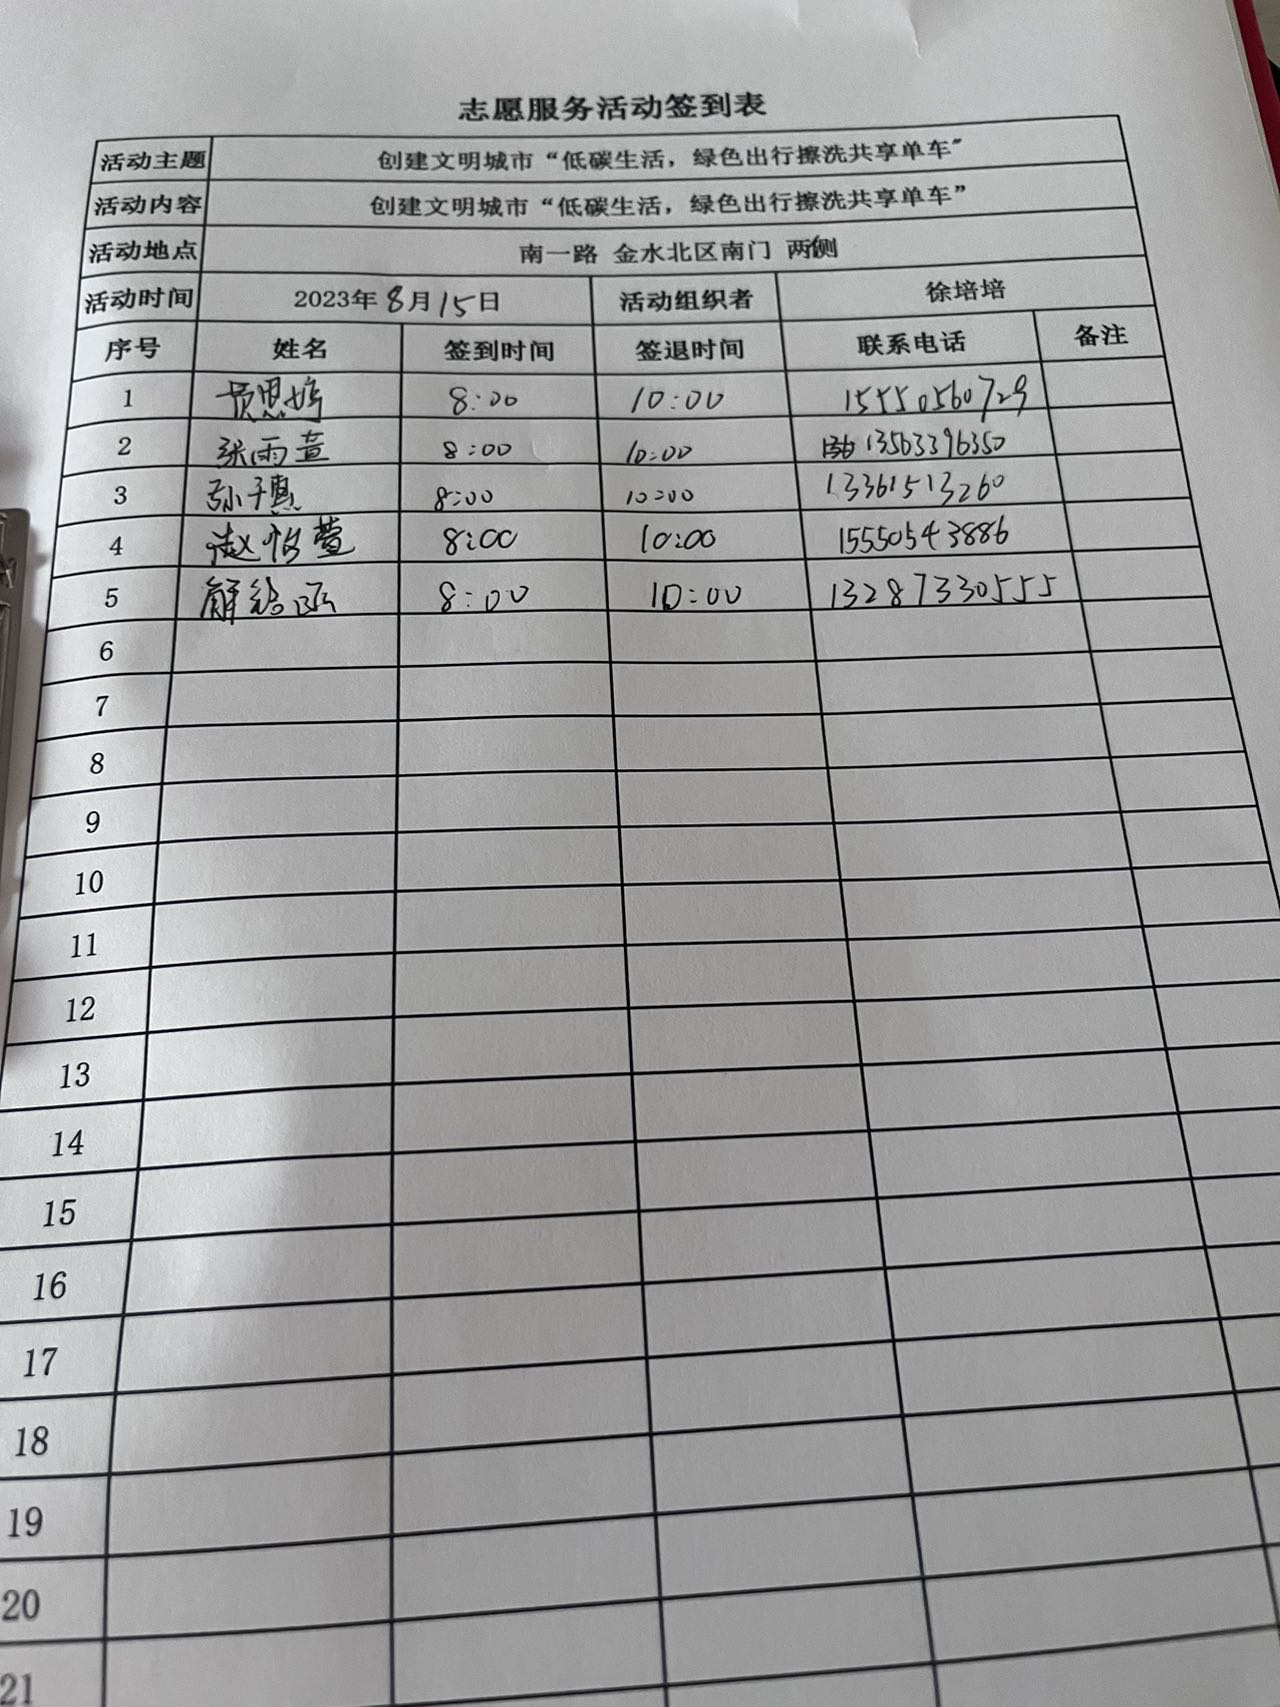 志愿服务活动签到表
活动主题 创建文明城市“低碳生活，绿色出行擦洗共享单车”
活动内容 创建文明城市“低碳生活，绿色出行擦洗共享单车”
活动地点 南一路 金水北区南门 两侧
活动时间 2023年8月15日 活动组织者 徐培培
序号 姓名 签到时间 签退时间 联系电话 备注
1 8:00 10:00 15550560729
2 张雨萱 8:00 10:00 13563396350
3 孙子惠 8:00 10:00 13361513260
4 赵怡萱 8:00 10:00 15550543886
5 解 涵 8:00 10:00 13287330555
6
7
8
9
10
11
12
13
14
15
16
17
18
19
20
21